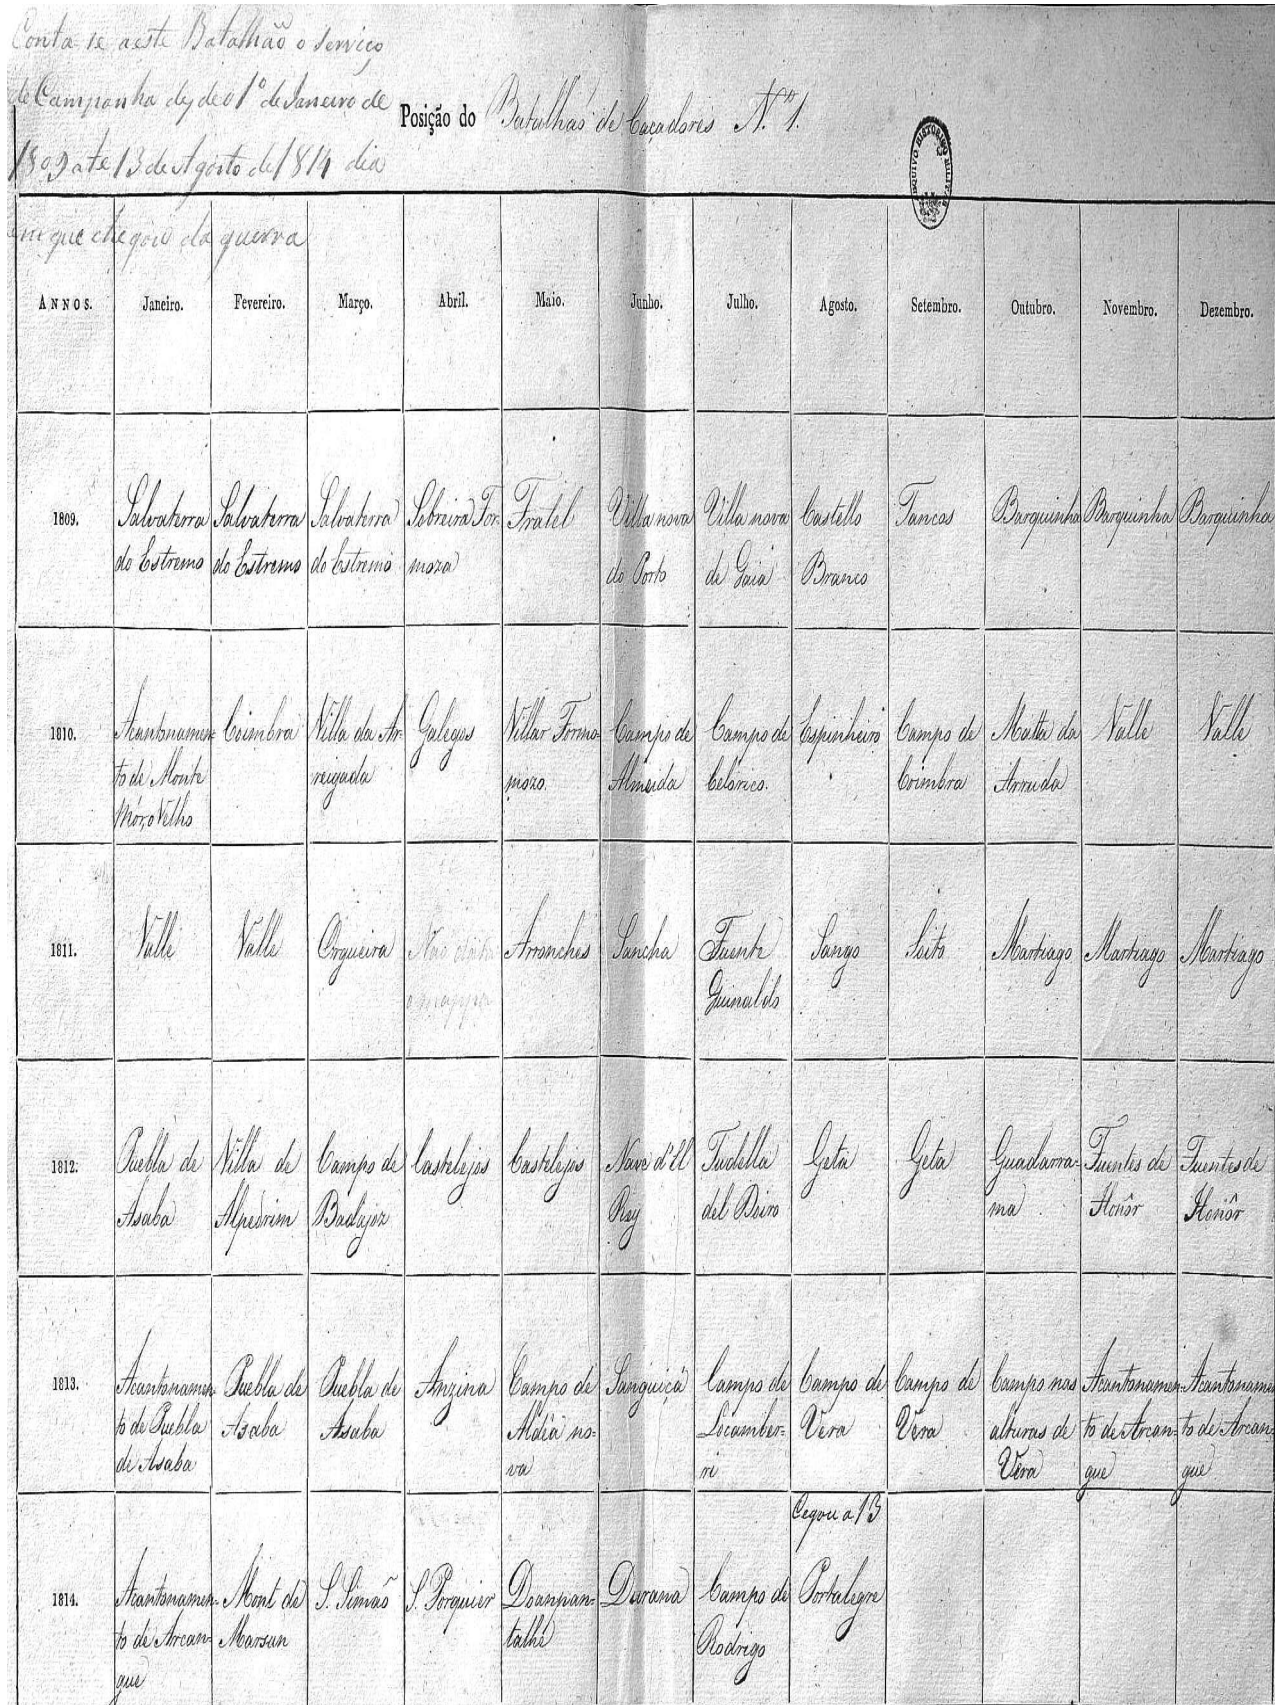 Conta-se a este Batalhão o serviço
de Campanha desde o 1º de Janeiro de
1809 ate 13 de Agosto de 1814 dia
em que chegou da guerra
Posição do Batalhão de Caçadores N.º 1.
ARQUIVO HISTORICO MILITAR
ANNOS. Janeiro. Fevereiro. Março. Abril. Maio. Junho. Julho. Agosto. Setembro. Outubro. Novembro. Dezembro.
1809.
Salvaterra
do Estremo
Salvaterra
do Estremo
Salvaterra
do Estremo
Sobreira For-
moza
Fratel
Villa nova
do Porto
Villa nova
de Gaia
Castello
Branco
Tancos
Barquinha
Barquinha
Barquinha
1810.
Acantonamen-
to de Monte
Mór o Velho
Coimbra
Villa da Ar-
reigada
Galegos
Villar Formo-
mozo.
Campo de
Almeida
Campo de
Celorico.
Espinheiro
Campo de
Coimbra
Matta da
Arruda
Valle
Valle
1811.
Valle
Valle
Orqueira
Não
o mappa
Arronches
Sancha
Fuente
Guinaldo
Sango
Soito
Martiago
Martiago
Martiago
1812.
Puebla de
Asaba
Villa de
Alpedrim
Campo de
Badajoz
Castelejos
Castelejos
Nave d'El
Rey
Tudella
del Doiro
Geta
Geta
Guadarra-
ma
Fuentes de
Honôr
Fuentes de
Honôr
1813.
Acantonamen-
to de Puebla
de Asaba
Puebla de
Asaba
Puebla de
Asaba
Anzina
Campo de
Aldêa no-
va
Sanguiça
Campo de
Locamber-
ri
Campo de
Vera
Campo de
Vera
Campo nas
alturas de
Vera
Acantonamen-
to de Arcan-
gue
Acantonamen
to de Arcan-
gue
1814.
Acantonamen-
to de Arcan-
gue
Mont de
Marsan
S. Simão
S. Porquier
Doanpan-
talhe
Durana
Campo de
Rodrigo
Cegou a 13
Portalegre